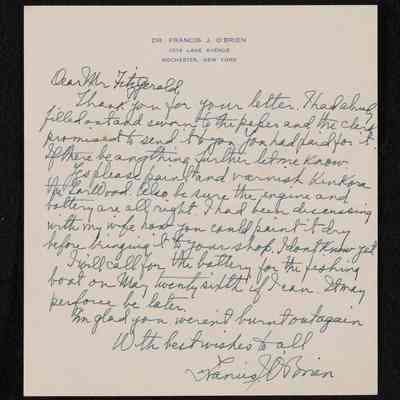 DR. FRANCIS J. O'BRIEN
LAKE AVENUE
ROCHESTER, NEW YORK
Dear Mr Fitzgerald,
Thank you for your letter. I had already
filled out and sworn to the paper and the clerk
promised to send it to you. You had paid for it.
If there be anything further let me know.
Yes please paint and varnish Kinkora
the Earlwood also. be sure the engine and
battery are all right. I had been discussing
with my wife how you could paint it dry
before bringing it to your shop. I dont know yet
I will call for the battery for the fishing
boat on May twenty sixth if I can. It may
perforce be later.
I'm glad you weren't burnt out again
With best wishes to all
Francis J O'Brien